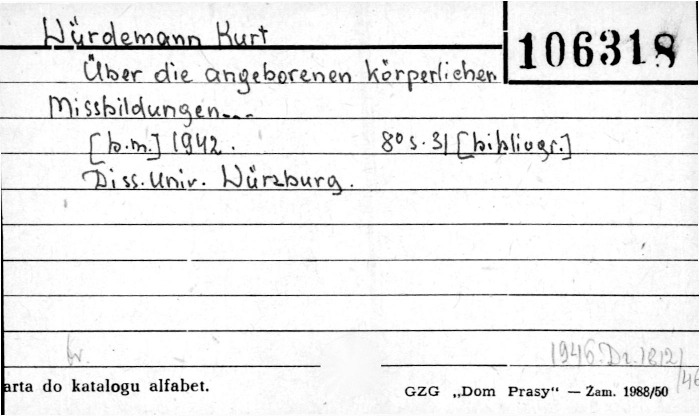 Würdemann Kurt
106318
Über die angeborenen körperlichen
Missbildungen...
[b.m.] 1942. 8° s. 31 [bibliogr.]
Diss. Univ. Würzburg.
1946.Dz.1212/
/46
arta do katalogu alfabet.
GZG „Dom Prasy" — Zam. 1988/50